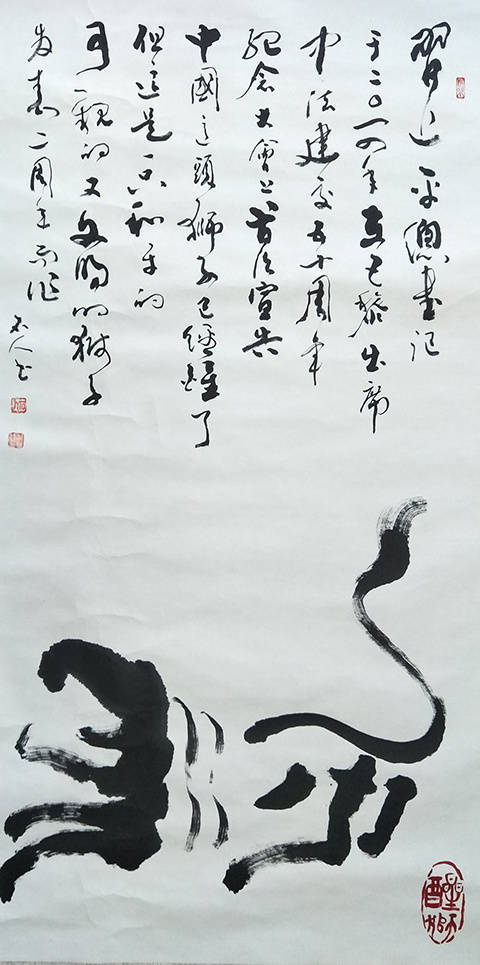 習近平總書記
于二〇一四年在巴黎出席
中法建交五十周年
紀念大會上首次宣告
中國这頭獅子已經醒了
但这是一只和平的
可親的又文明的獅子
发表二周年而作
书
醒獅